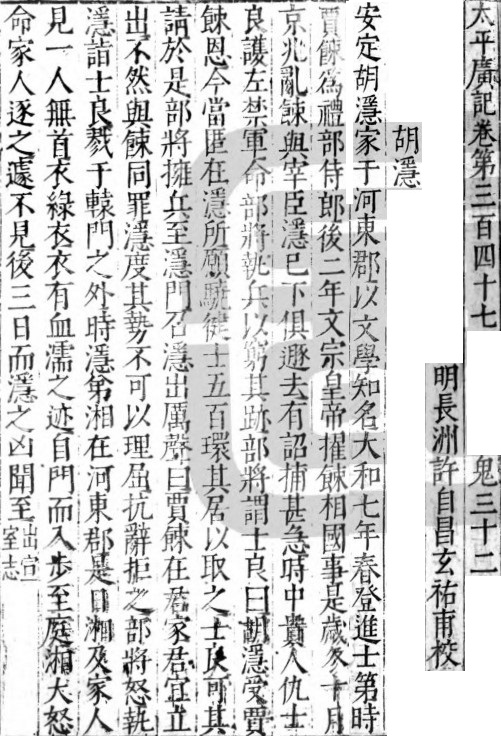 太平廣記卷第三百四十七 鬼三十二
明長洲許自昌玄祐甫校
胡濦
安定胡濦家于河東郡以文學知名大和七年春登進士第時
賈餗爲禮部侍郎後二年文宗皇帝擢餗相國事是歲冬十月
京兆亂餗與宰臣濦已下俱遯去有詔捕甚急時中貴人仇士
良護左禁軍命部將執兵以窮其跡部將謂士良曰胡濦受賈
餗恩今當匿在濦所願驍健士五百環其居以取之士良可其
請於是部將擁兵至濦門召濦出厲聲曰賈餗在君家君宜立
出不然與餗同罪濦度其勢不可以理屈抗辭拒之部將怒執
濦詣士良戮于轅門之外時濦第湘在河東郡是日湘及家人
見一人無首衣綠衣衣有血濡之迹自門而入步至庭湘大怒
命家人逐之遽不見後三日而濦之凶聞至出宣室志